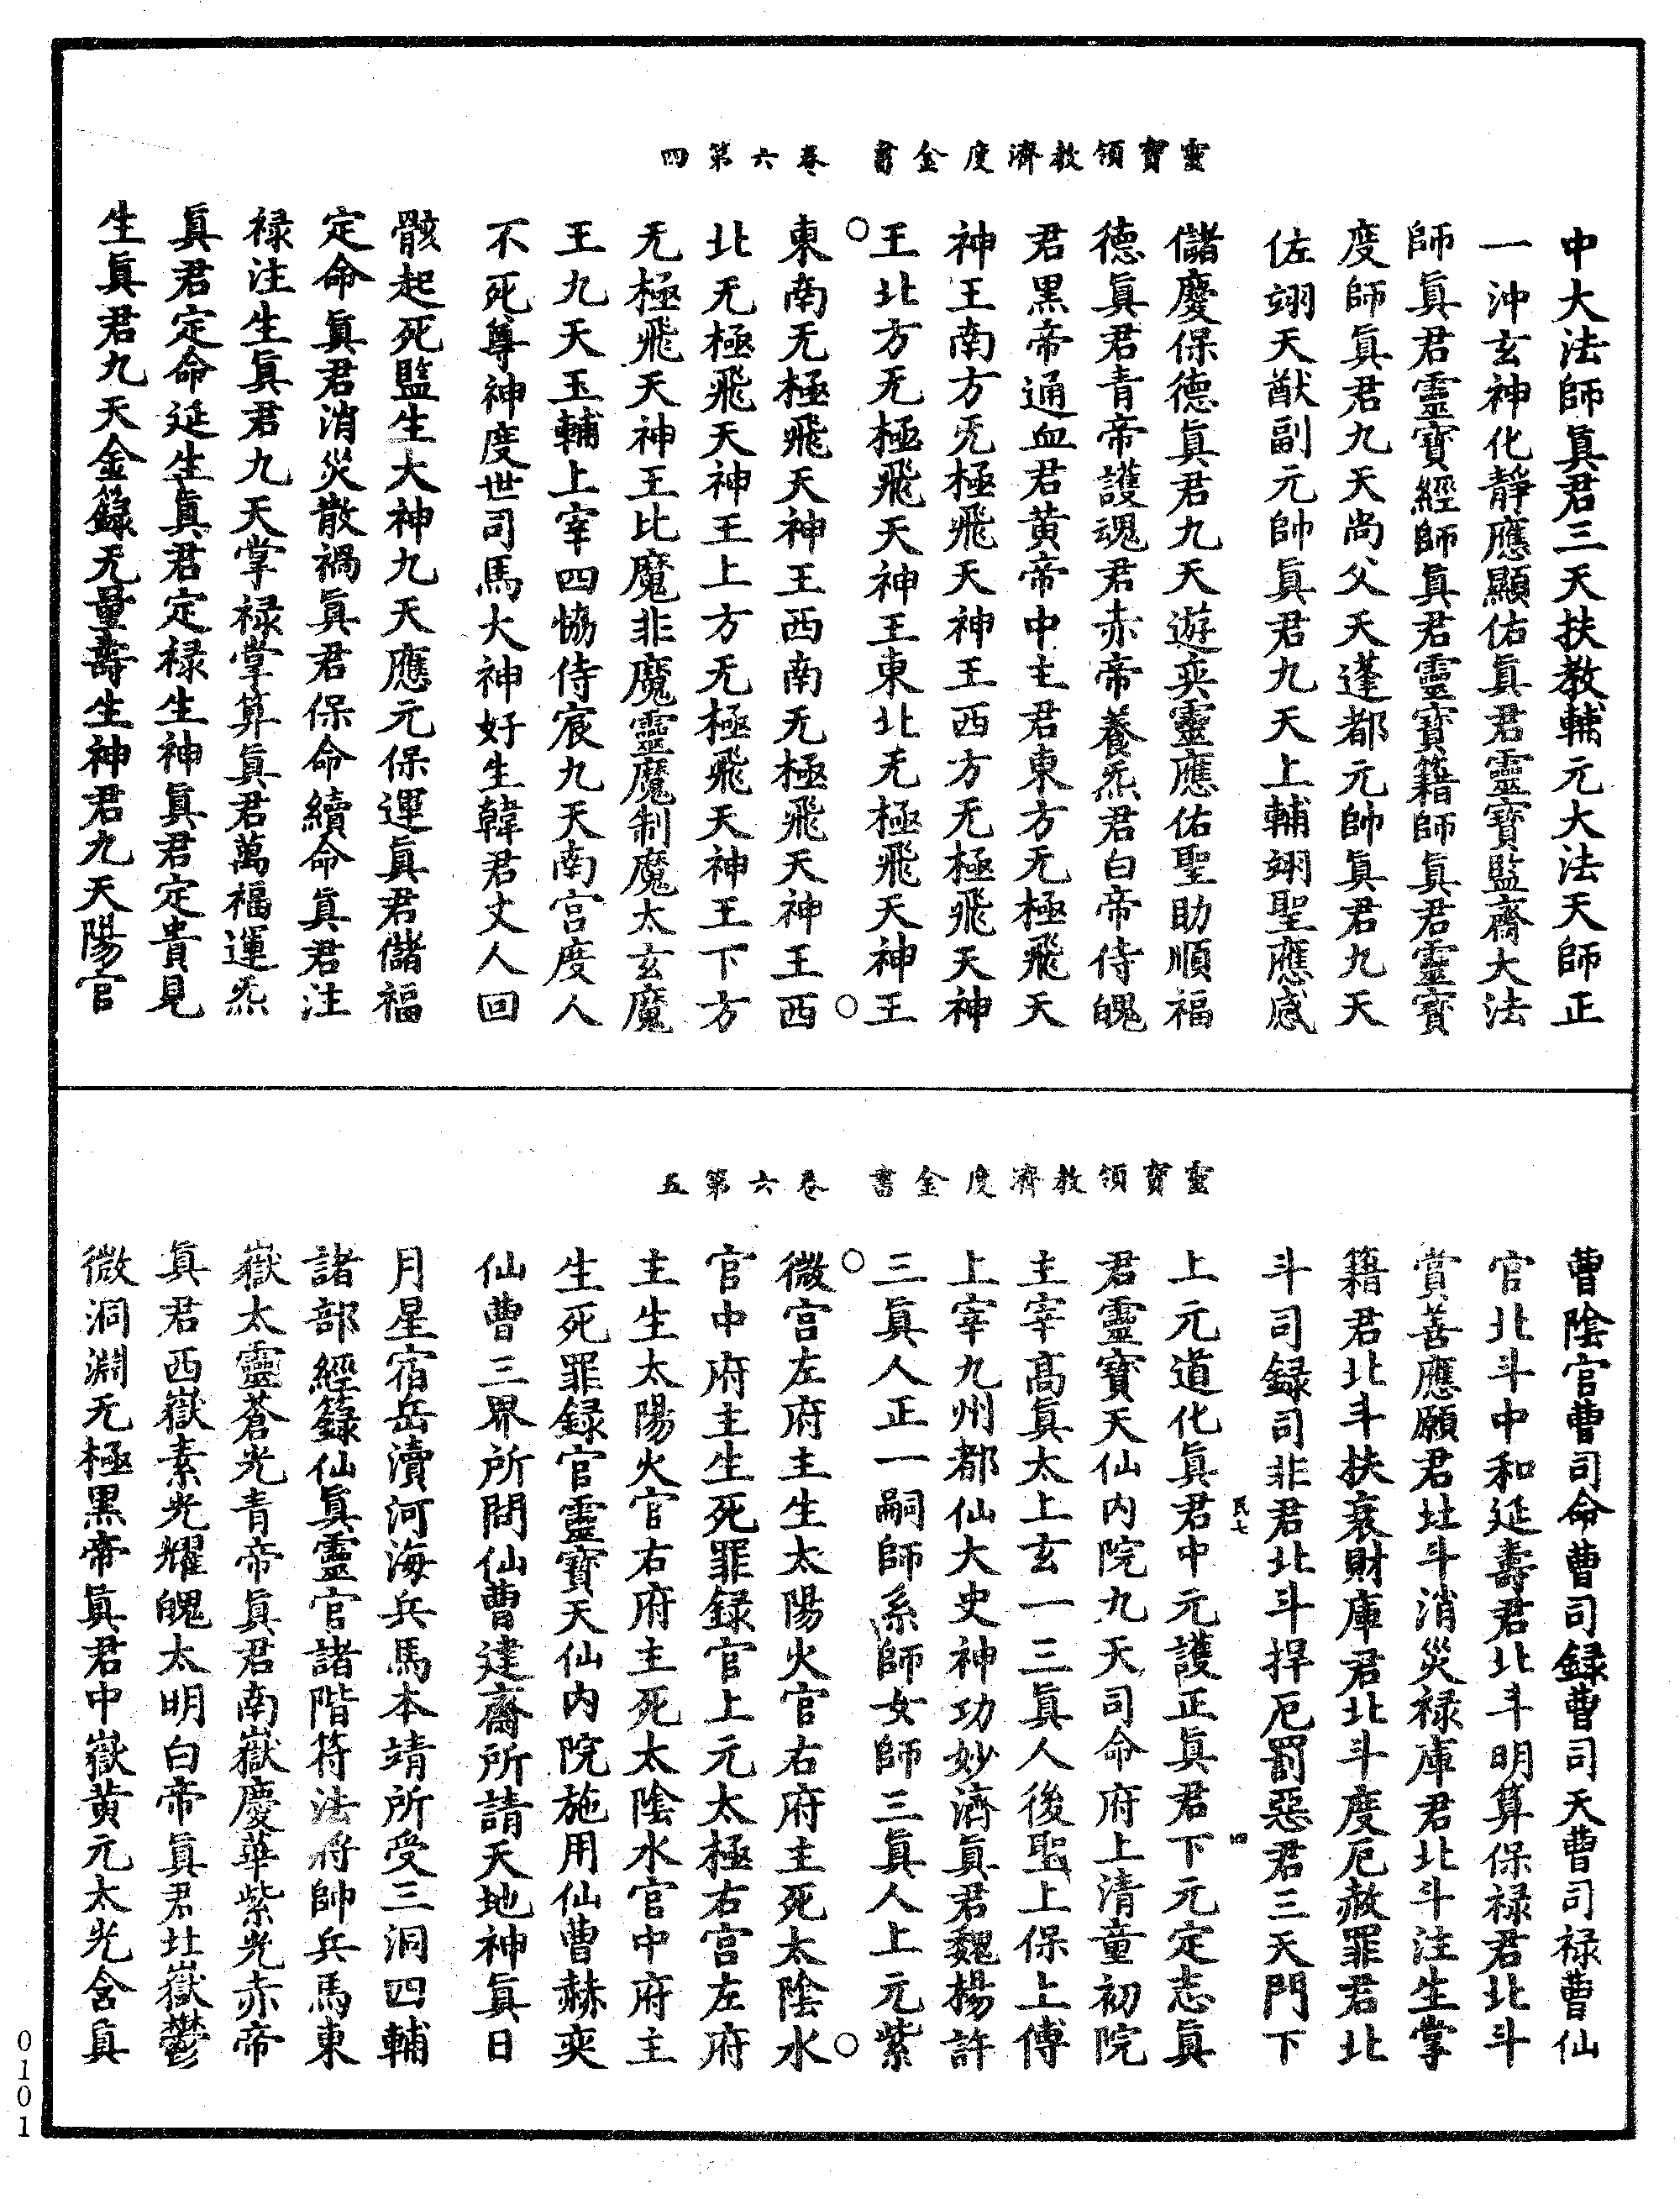 靈寶領教濟度金書　卷六第四
中大法師眞君三天扶教輔元大法天師正
一沖玄神化靜應顯佑眞君靈寶監齋大法
師眞君靈寶經師眞君靈寶籍師眞君靈寶
度師眞君九天尚父天蓬都元帥眞君九天
佐翊天猷副元帥眞君九天上輔翊聖應感
儲慶保德眞君九天遊奕靈應佑聖助順福
德眞君青帝護魂君赤帝養炁君白帝侍魄
君黑帝通血君黃帝中主君東方无極飛天
神王南方无極飛天神王西方无極飛天神
王北方无極飛天神王東北无極飛天神王
東南无極飛天神王西南无極飛天神王西
北无極飛天神王上方无極飛天神王下方
无極飛天神王比魔非魔靈魔制魔太玄魔
王九天玉輔上宰四恊侍宸九天南宫度人
不死尊神度世司馬大神好生韓君丈人回
骸起死監生大神九天應元保運眞君儲福
定命眞君消災散禍眞君保命續命眞君注
禄注生眞君九天掌禄掌算眞君萬福運炁
眞君定命延生眞君定禄生神眞君定貴見
生眞君九天金籙无量壽生神君九天陽官
靈寶領教濟度金書　卷六第五
曹陰官曹司命曹司録曹司天曹司禄曹仙
官北斗中和延壽君北斗明算保禄君北斗
賞善應願君北斗消災禄庫君北斗注生掌
籍君北斗扶衰財庫君北斗度厄赦罪君北
斗司録司非君北斗捍厄罰惡君三天門下
民七　四
上元道化眞君中元護正眞君下元定志眞
君靈寶天仙内院九天司命府上清童初院
主宰髙眞太上玄一三眞人後聖上保上傅
上宰九州都仙大史神功妙濟眞君魏楊許
三眞人正一嗣師系師女師三眞人上元紫
微宫左府主生太陽火官右府主死太陰水
官中府主生死罪録官上元太極右宫左府
主生太陽火官右府主死太陰水官中府主
生死罪録官靈寶天仙内院施用仙曹赫奕
仙曹三界所間仙曹建齋所請天地神眞日
月星宿岳瀆河海兵馬本靖所受三洞四輔
諸部經籙仙眞靈官諸階符法将帥兵馬東
嶽太靈蒼光青帝眞君南嶽慶華紫光赤帝
眞君西嶽素光耀魄太明白帝眞君北嶽鬱
微洞淵无極黑帝眞君中嶽黄元太光含眞
0101